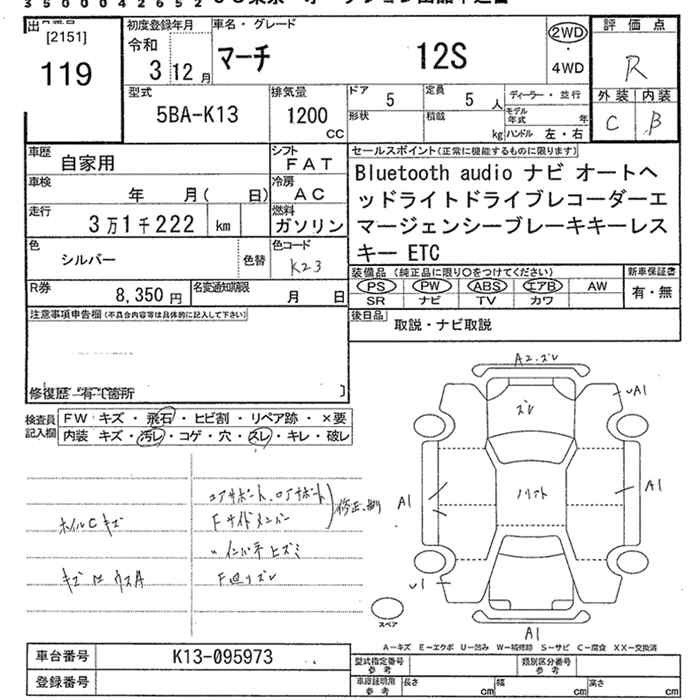 3500042652
[2151]
119
初度登録年月
令和
3年12月
車名・グレード
マーチ 12S
2WD
・
4WD
評価点
R
外装 内装
C B
型式
5BA-K13
排気量
1200
CC
ドア
5
定員
5人
形状
積載
kg
ディーラー・並行
モデル年式 年
ハンドル 左・右
車歴
自家用
シフト
FAT
車検
年 月( 日)
冷房
AC
走行
3万1千222 km
燃料
ガソリン
色
シルバー
色替
色コード
K23
R券
8,350円
名変通知期限
月 日
セールスポイント(正常に機能するものに限ります)
Bluetooth audio ナビ オートヘ
ッドライトドライブレコーダーエ
マージェンシーブレーキキーレス
キー ETC
装備品 (純正品に限り○をつけてください)
PS PW ABS エアB AW
SR ナビ TV カワ
新車保証書
有・無
後日品
取説・ナビ取説
注意事項申告欄(不具合内容等は具体的に記入して下さい)
修復歴
検査員
記入欄
FW キズ・飛石・ヒビ割・リペア跡・×要
内装 キズ・汚レ・コゲ・穴・スレ・キレ・破レ
コアサポート、ロアサポート
修正
Fサイドメンバー
〃 インパネヒズミ
F廻リズレ
ホイルCキズ
A2.ズレ
ズレ
A1
A1
A1
A1
スペア
A-キズ E-エクボ U-凹み W-補修跡 S-サビ C-腐食 XX-交換済
車台番号
K13-095973
登録番号
型式指定番号
参考
類別区分番号
参考
車庫証明用
参考
長さ cm
幅 cm
高さ cm